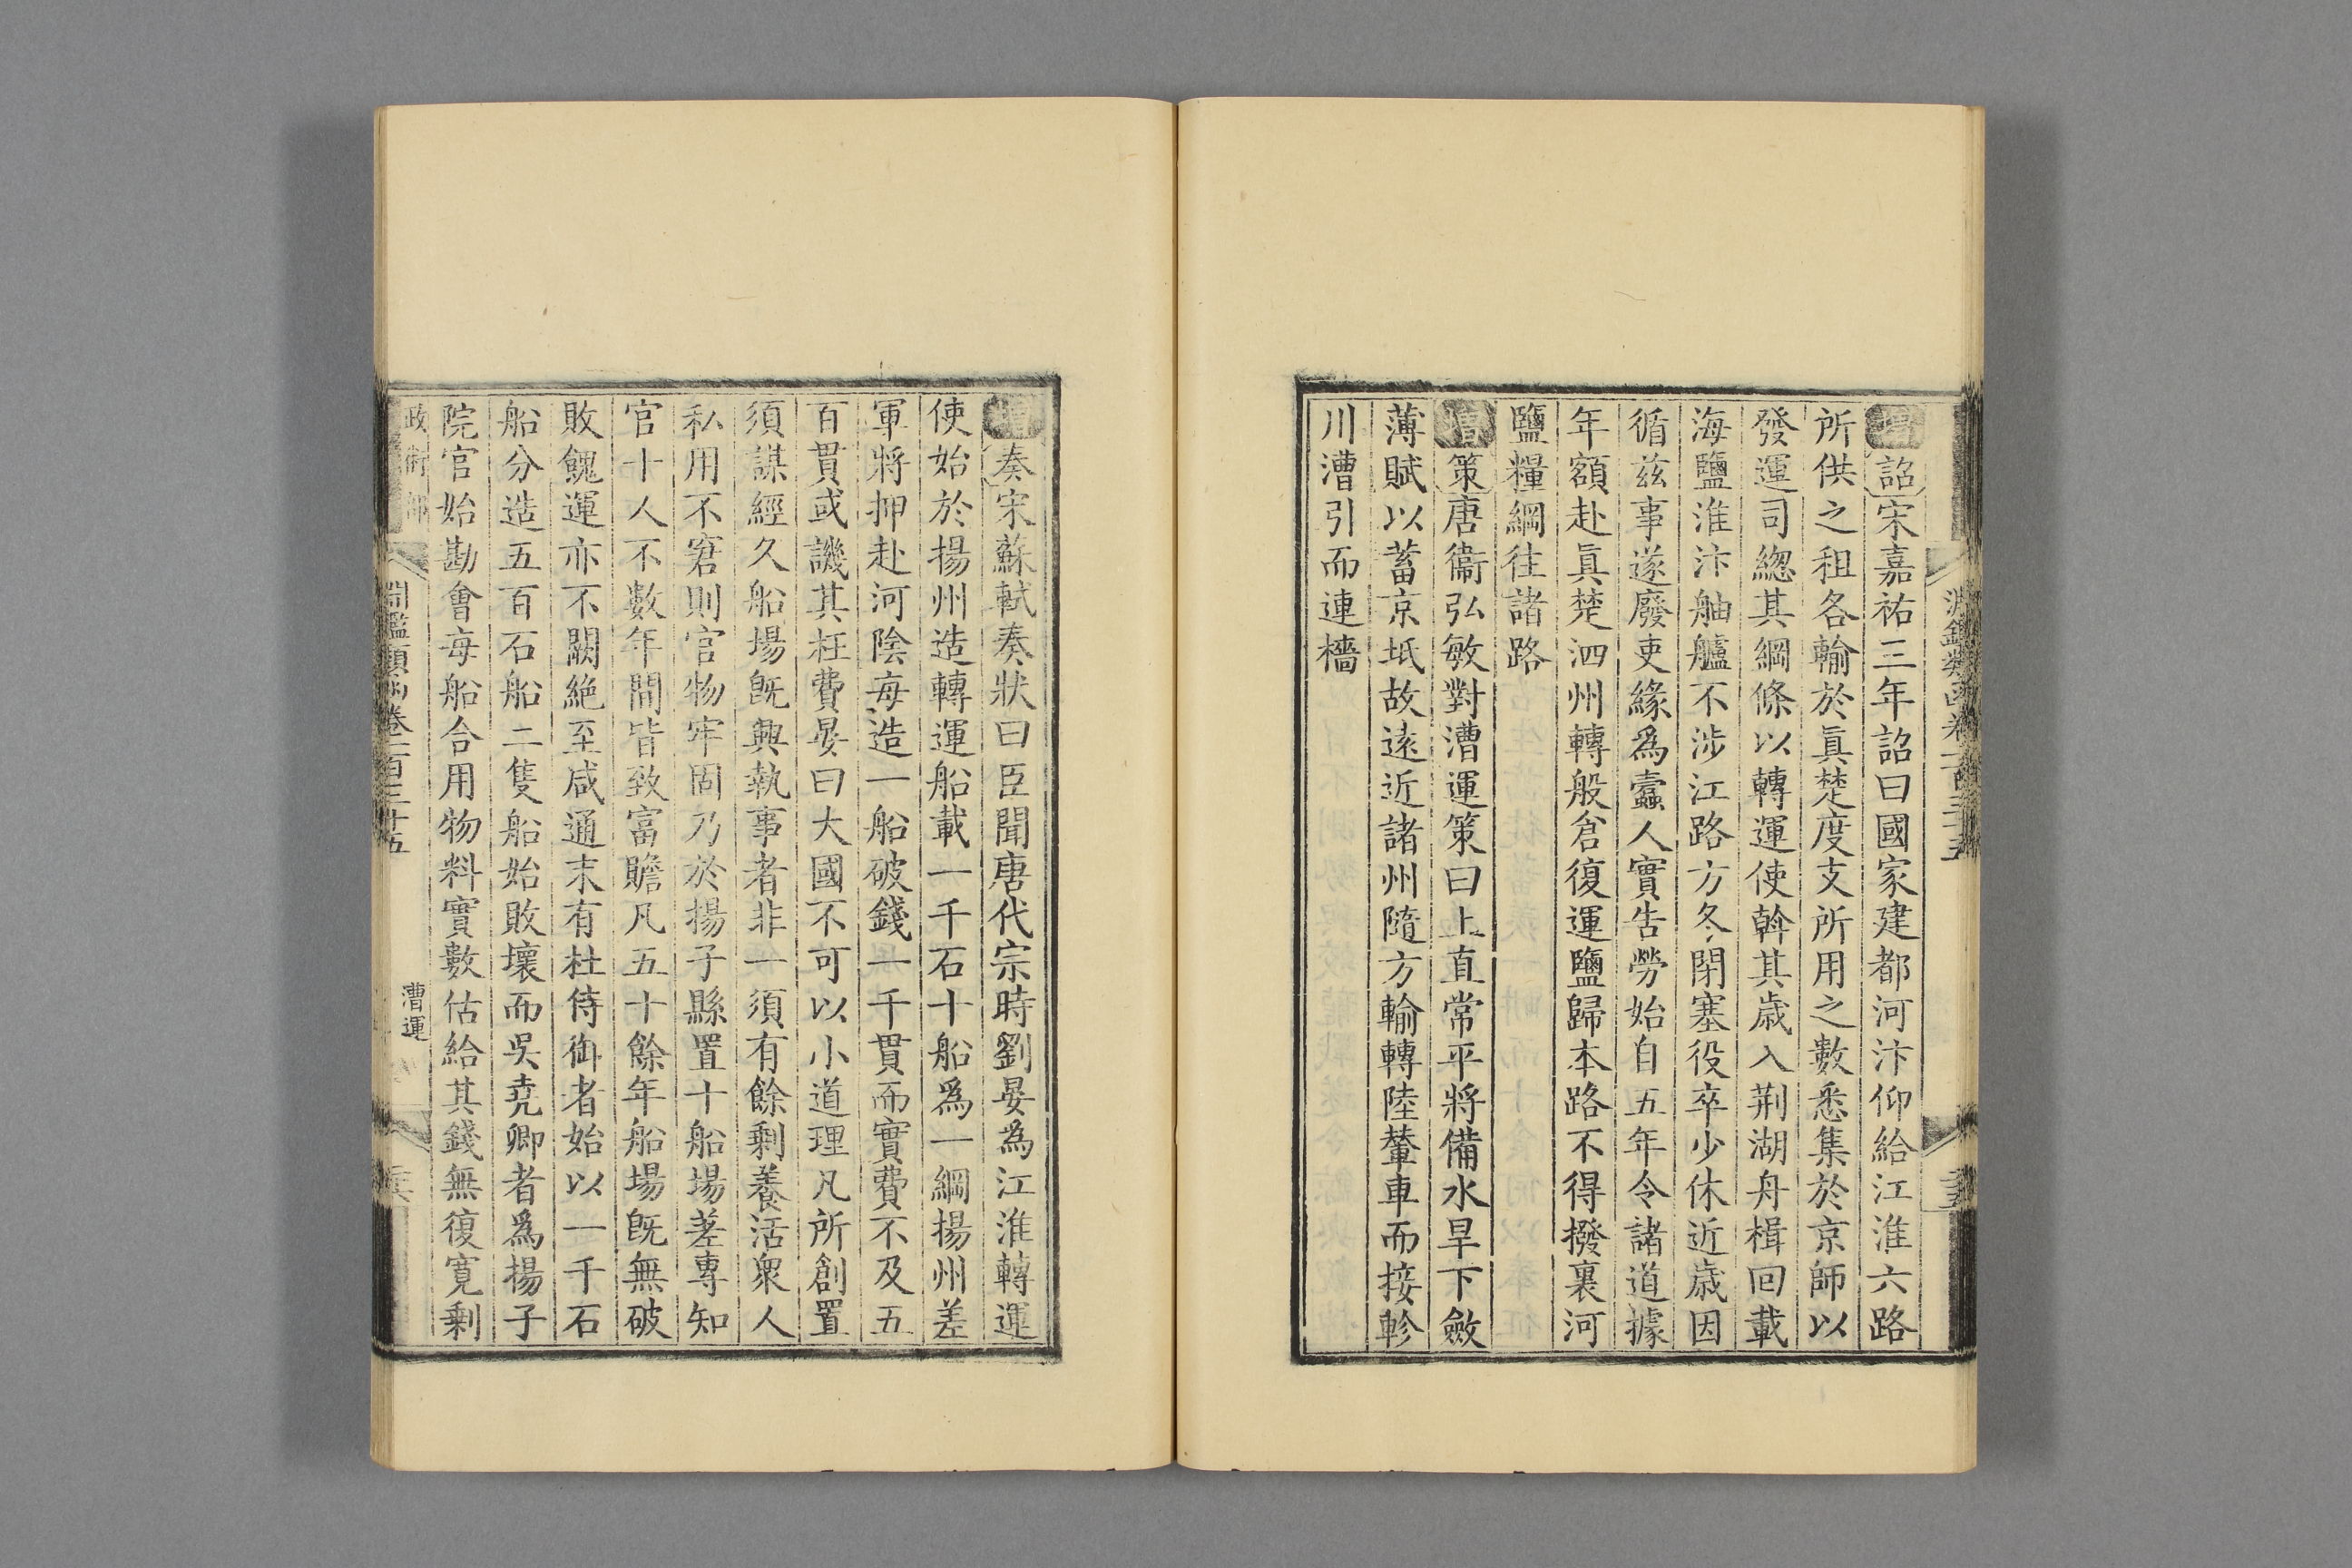 增詔宋嘉祐三年詔曰國家建都河汴仰給江淮六路
所供之租各輸於眞楚度支所用之數悉集於京師以
發運司緫其綱條以轉運使斡其歲入荆湖舟楫回載
海鹽淮汴舳艫不涉江路方冬閉塞役卒少休近歲因
循兹事遂廢吏緣為蠹人實告勞始自五年令諸道據
年額赴眞楚泗州轉般倉復運鹽歸本路不得撥裏河
鹽糧綱往諸路
增策唐衞弘敏對漕運策曰上直常平將備水旱下斂
薄賦以蓄京坻故遠近諸州隨方輸轉陸輦車而接軫
川漕引而連檣
淵鑑類函卷一百三十五
增奏宋蘇軾奏狀曰臣聞唐代宗時劉晏為江淮轉運
使始於揚州造轉運船載一千石十船爲一綱揚州差
軍將押赴河陰每造一船破錢一千貫而實費不及五
百貫或譏其枉費晏曰大國不可以小道理凡所創置
須謀經久船場旣興執事者非一須有餘剩養活衆人
私用不窘則官物牢固乃於揚子縣置十船場差專知
官十人不數年間皆致富贍凡五十餘年船場旣無破
敗餽運亦不闕絶至咸通末有杜侍御者始以一千石
船分造五百石船二隻船始敗壞而吳堯卿者爲揚子
院官始勘會每船合用物料實數估給其錢無復寛剩
政術部
淵鑑類函卷一百三十五
漕運